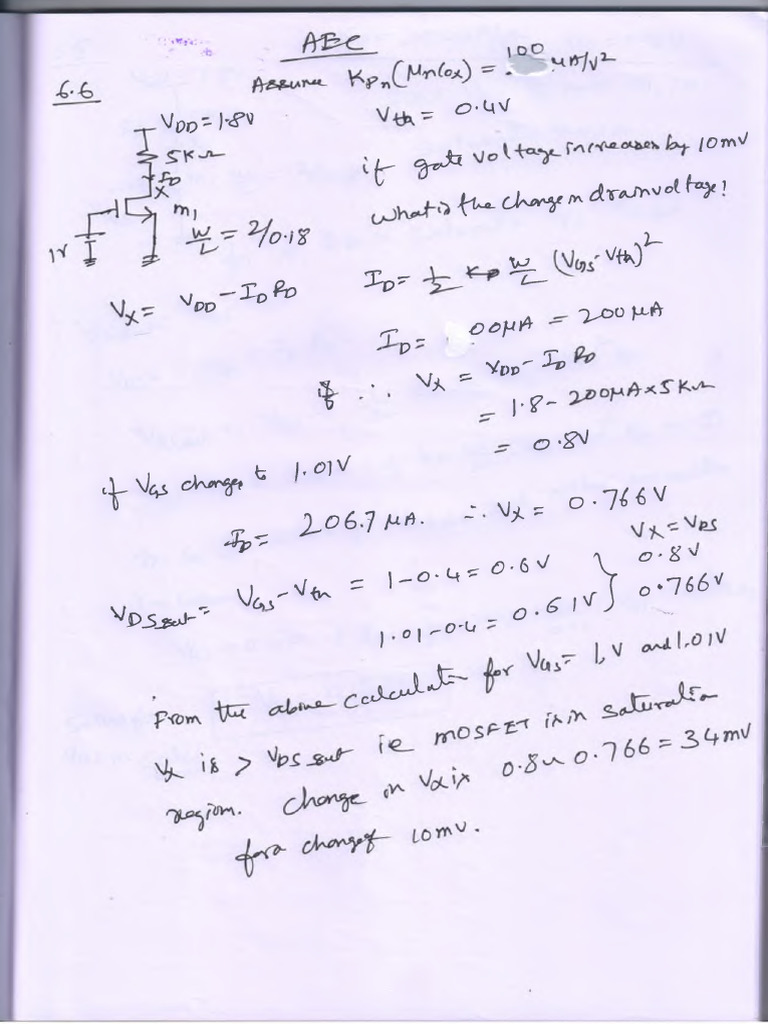 AEC
6.6
Assume Kpn (MnCox) = 100 μA/V²
Vth = 0.4V
VDD = 1.8V
5KΩ
ID
X
M1
1V
W/L = 2/0.18
if gate voltage increases by 10mV
what is the change in drain voltage?
VX = VDD - ID RD
ID = 1/2 Kp W/L (VGS - Vth)²
ID = 00μA = 200μA
if ∴ VX = VDD - ID RD
= 1.8 - 200μA x 5KΩ
= 0.8V
if VGS changes to 1.01V
ID = 206.7 μA. ∴ VX = 0.766V
VX = VDS
VDSsat = VGS - Vth = 1 - 0.4 = 0.6V } 0.8V
1.01 - 0.4 = 0.61V } 0.766V
From the above calculation for VGS = 1V and 1.01V
VX is > VDSsat ie MOSFET is in saturation
region. Change in VX is 0.8 ~ 0.766 = 34mV
for a change of 10mV.